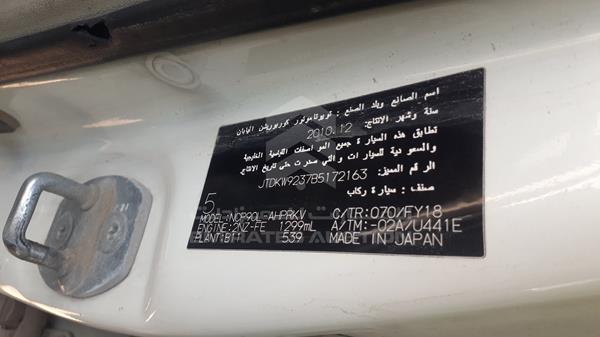 اسم الصانع وبلد الصنع : تويوتا موتور كوربوريشن اليابان
سنة وشهر الانتاج: 2010.12
تطابق هذه السيارة جميع المواصفات القياسية الخليجية
والسعودية للسيارات والتي صدرت حتى تاريخ الانتاج
الرقم المميز: JTDKW9237B5172163
صنف : سيارة ركاب
5
MODEL:NCP90L-AHPRKV C/TR:070/FY18
ENGINE:2NZ-FE 1299mL A/TM:-02A/U441E
PLANT:B11 539 MADE IN JAPAN